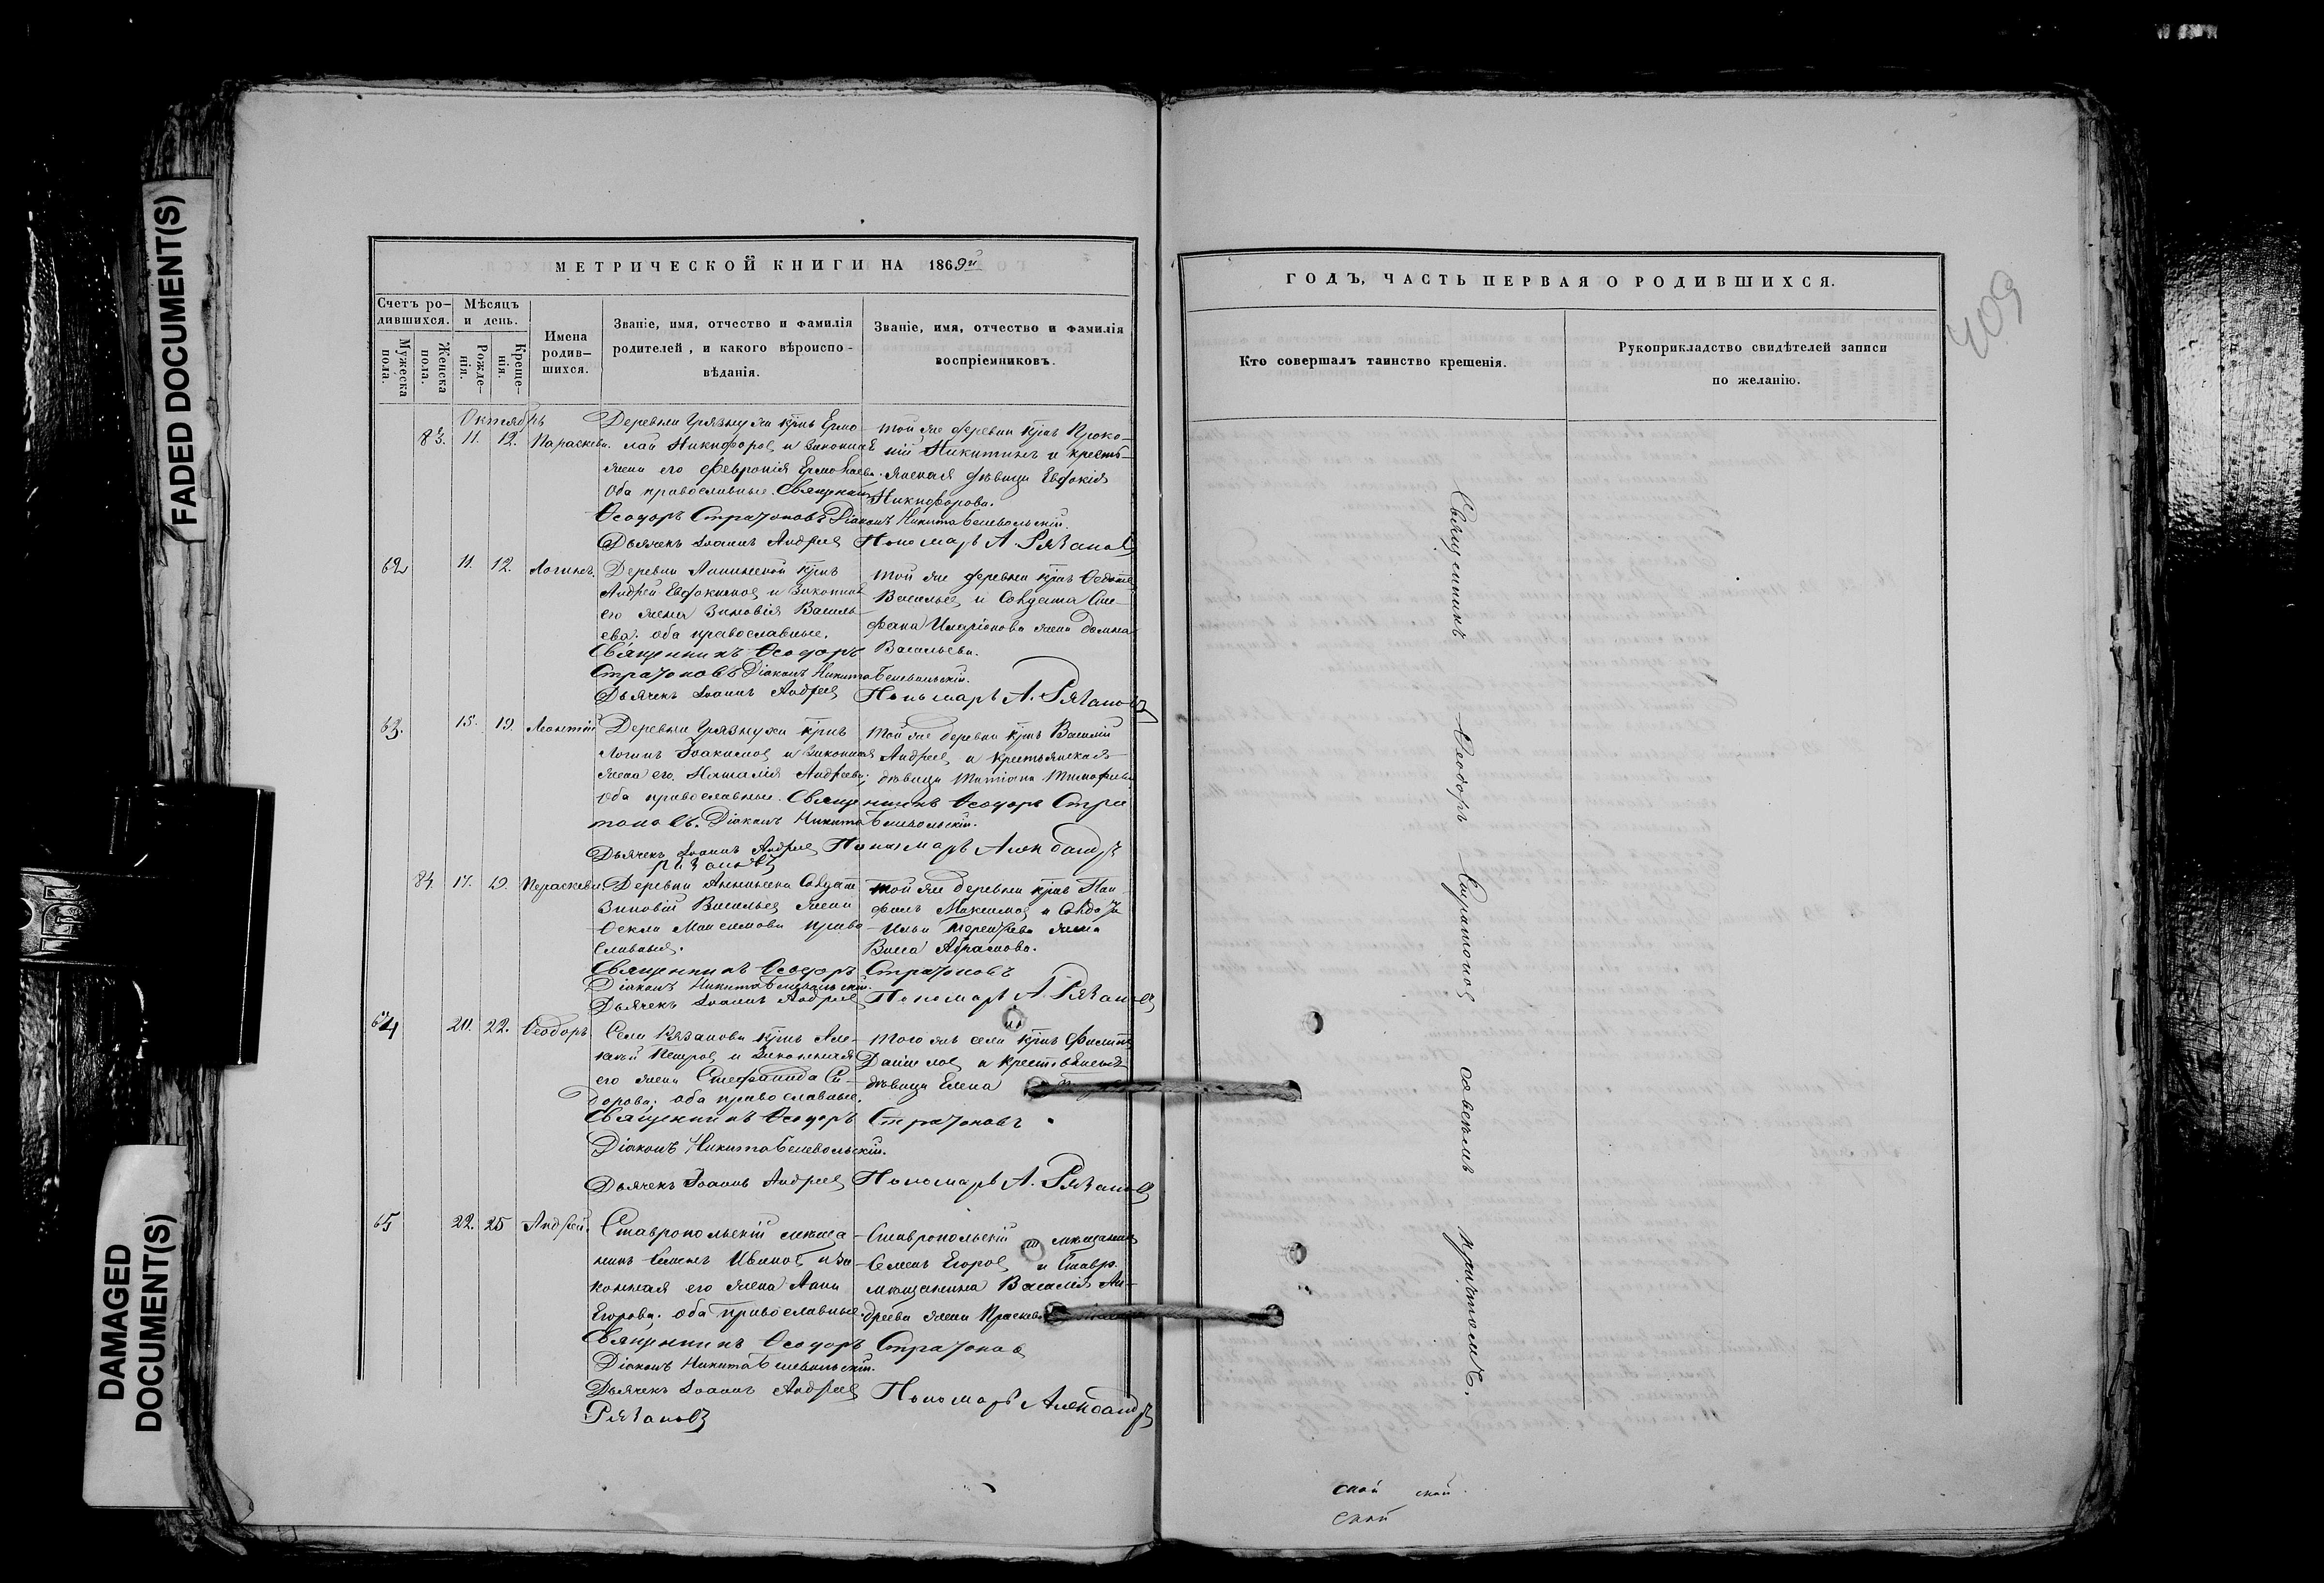 FADED DOCUMENT(S)
DAMAGED
DOCUMENT(S)
МЕТРИЧЕСКОЙ КНИГИ НА 1869й
Счетъ ро-
дившихся.
Мужеска
пола.
Женска
пола.
Мѣсяцъ
и день.
Рожде-
нія.
Креще-
нія.
Имена
родив-
шихся.
Званіе, имя, отчество и фамилія
родителей, и какого вѣроиспо-
вѣданія.
Званіе, имя, отчество и фамилія
воспріемниковъ.
Октябрь
83. 11. 12. Параскева.
Деревни Грязнухи крнъ Ермо-
лай Никифоров и законная
жена его Феврония Ермолаева.
Оба православные. Священникъ
Ѳеодоръ Стратоновъ Діаконъ Никита Беневольскій.
Дьячекъ Іоаннъ Андреев Пономарь А. Рязановъ
той же деревни крнъ Проко-
пій Никитинъ и кресть-
янская дѣвица Евдокія
Никифорова.
62 11. 12. Логинъ.
Деревни крнъ
Андрей Евдокимов и законная
его жена Зиновія Василь-
ева. оба православные.
Священникъ Ѳеодоръ
Стратоновъ Діаконъ Никита Беневольскій.
Дьячекъ Іоаннъ Андреев Пономарь А. Рязановъ
той же деревни крнъ Ѳедотъ
Васильев и Солдата Сте-
фана Иларіонова жена Домна
Васильева.
63. 15. 19. Леонтій
Деревни Грязнухи крнъ
Логинъ Іоакимов и законная
жена его Наталія Андреева;
оба православные. Священникъ Ѳеодоръ Стра
тоновъ. Діаконъ Никита Беневольскій.
Дьячекъ Іоаннъ Андреев Пономарь Александръ
Рязановъ
той же деревни крнъ Василій
Андреев и крестьянская
дѣвица Татіана Тимофеева
84. 17. 19. Параскева
Деревни Солдата
Зиновій Васильев жена
Ѳекла Максимова право
славныя.
Священникъ Ѳеодоръ Стратоновъ
Діаконъ Никита Беневольскій.
Дьячекъ Іоаннъ Андреев Пономарь А. Рязановъ
той же деревни крнъ Пан-
филъ Максимов и
Ильи Терентьева жена
Васса Абрамова.
64 20. 22. Ѳеодоръ.
Села Рязанова крнъ Але-
ксѣй Петров и законная
его жена Стефанида Си-
дорова; оба православные.
Священникъ Ѳеодоръ Стратоновъ
Діаконъ Никита Беневольскій.
Дьячекъ Іоаннъ Андреев Пономарь А. Рязановъ
того же села крнъ Филиппъ
Данилов и крестьянская
дѣвица Елена
65 22. 25 Андрей.
Ставропольскій мѣща-
нинъ Семенъ Иванов и за
конная его жена Анна
Егорова; оба православные.
Священникъ Ѳеодоръ Стратонов
Діаконъ Никита Беневольскій.
Дьячекъ Іоаннъ Андреев Пономарь Александръ
Рязановъ
Ставропольскій мѣщанинъ
Семенъ Егоров и Ставр.
мѣщанина Василія Ан-
дреева жена Праскева
ГОДЪ, ЧАСТЬ ПЕРВАЯ О РОДИВШИХСЯ.
409
Кто совершалъ таинство крещенія.
Рукоприкладство свидѣтелей записи
по желанію.
Священникъ Ѳеодоръ Стратонов со всѣмъ причтомъ.
ской ской.
ской